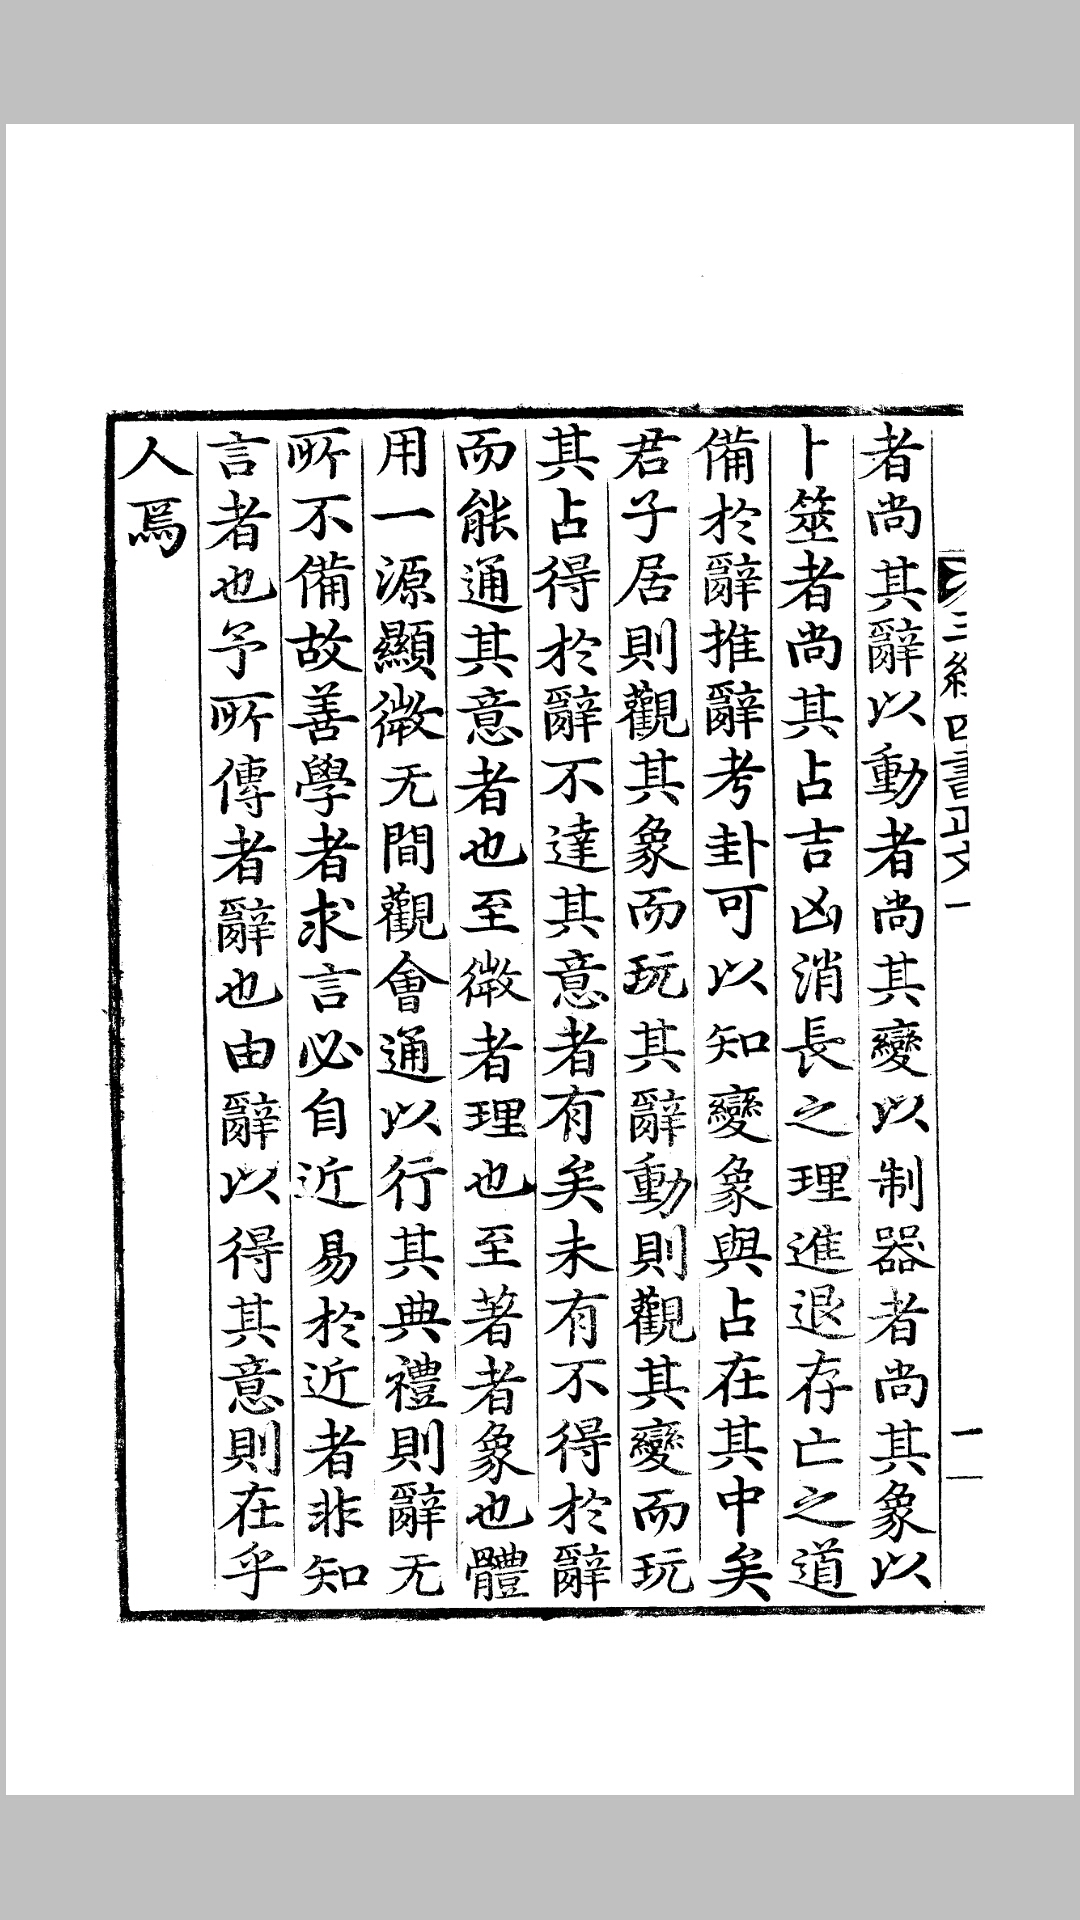 三經四書正文一
二
者尚其辭以動者尚其變以制器者尚其象以
卜筮者尚其占吉凶消長之理進退存亡之道
備於辭推辭考卦可以知變象與占在其中矣
君子居則觀其象而玩其辭動則觀其變而玩
其占得於辭不達其意者有矣未有不得於辭
而能通其意者也至微者理也至著者象也體
用一源顯微无間觀會通以行其典禮則辭无
所不備故善學者求言必自近易於近者非知
言者也予所傳者辭也由辭以得其意則在乎
人焉